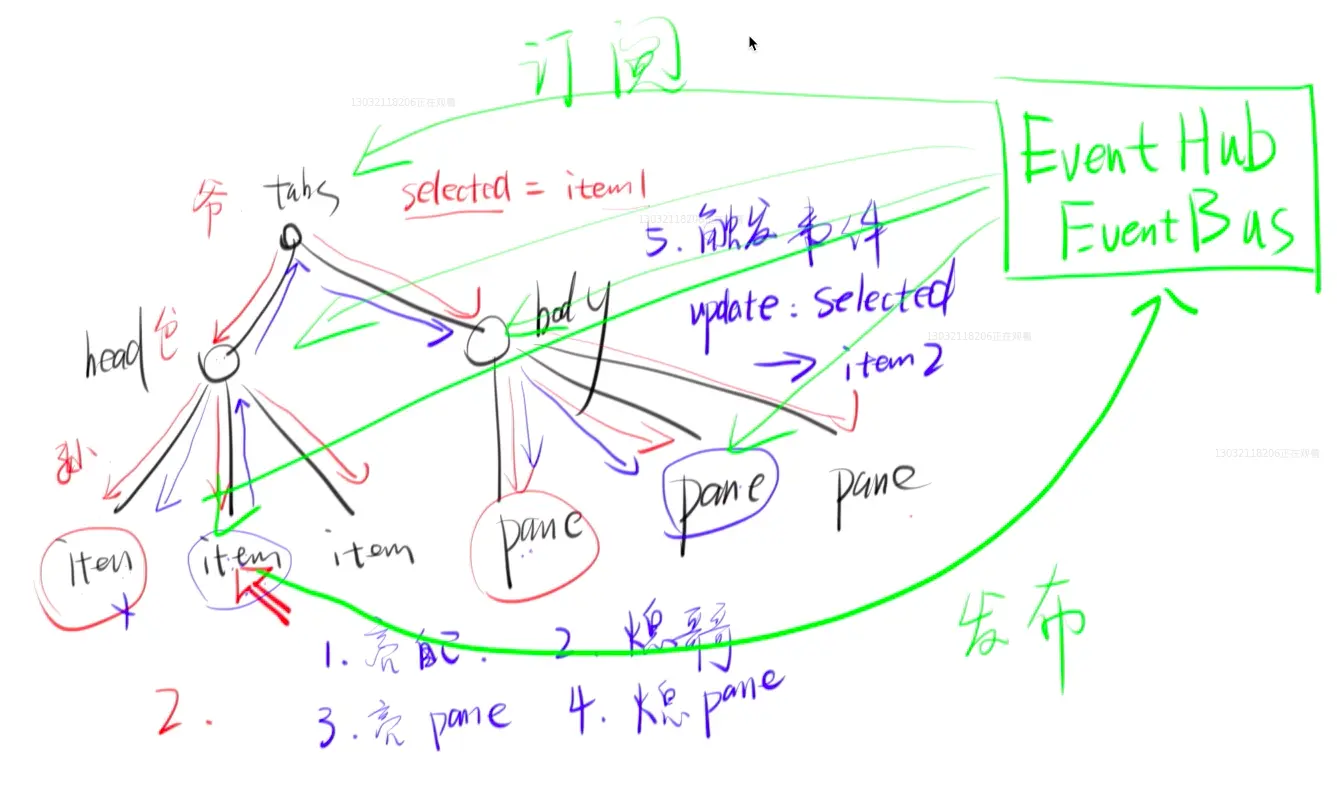 订阅
13032118206正在观看
Event Hub
EventBus
爷 tabs
selected = item1
13032118206正在观看
5. 触发事件
update: selected
→ item2
13032118206正在观看
head 爸
body
孙
item
item
item
pane
pane
pane
13032118206正在观看
发布
1. 亮自己. 2. 熄哥哥
3. 亮 pane 4. 熄 pane
2.